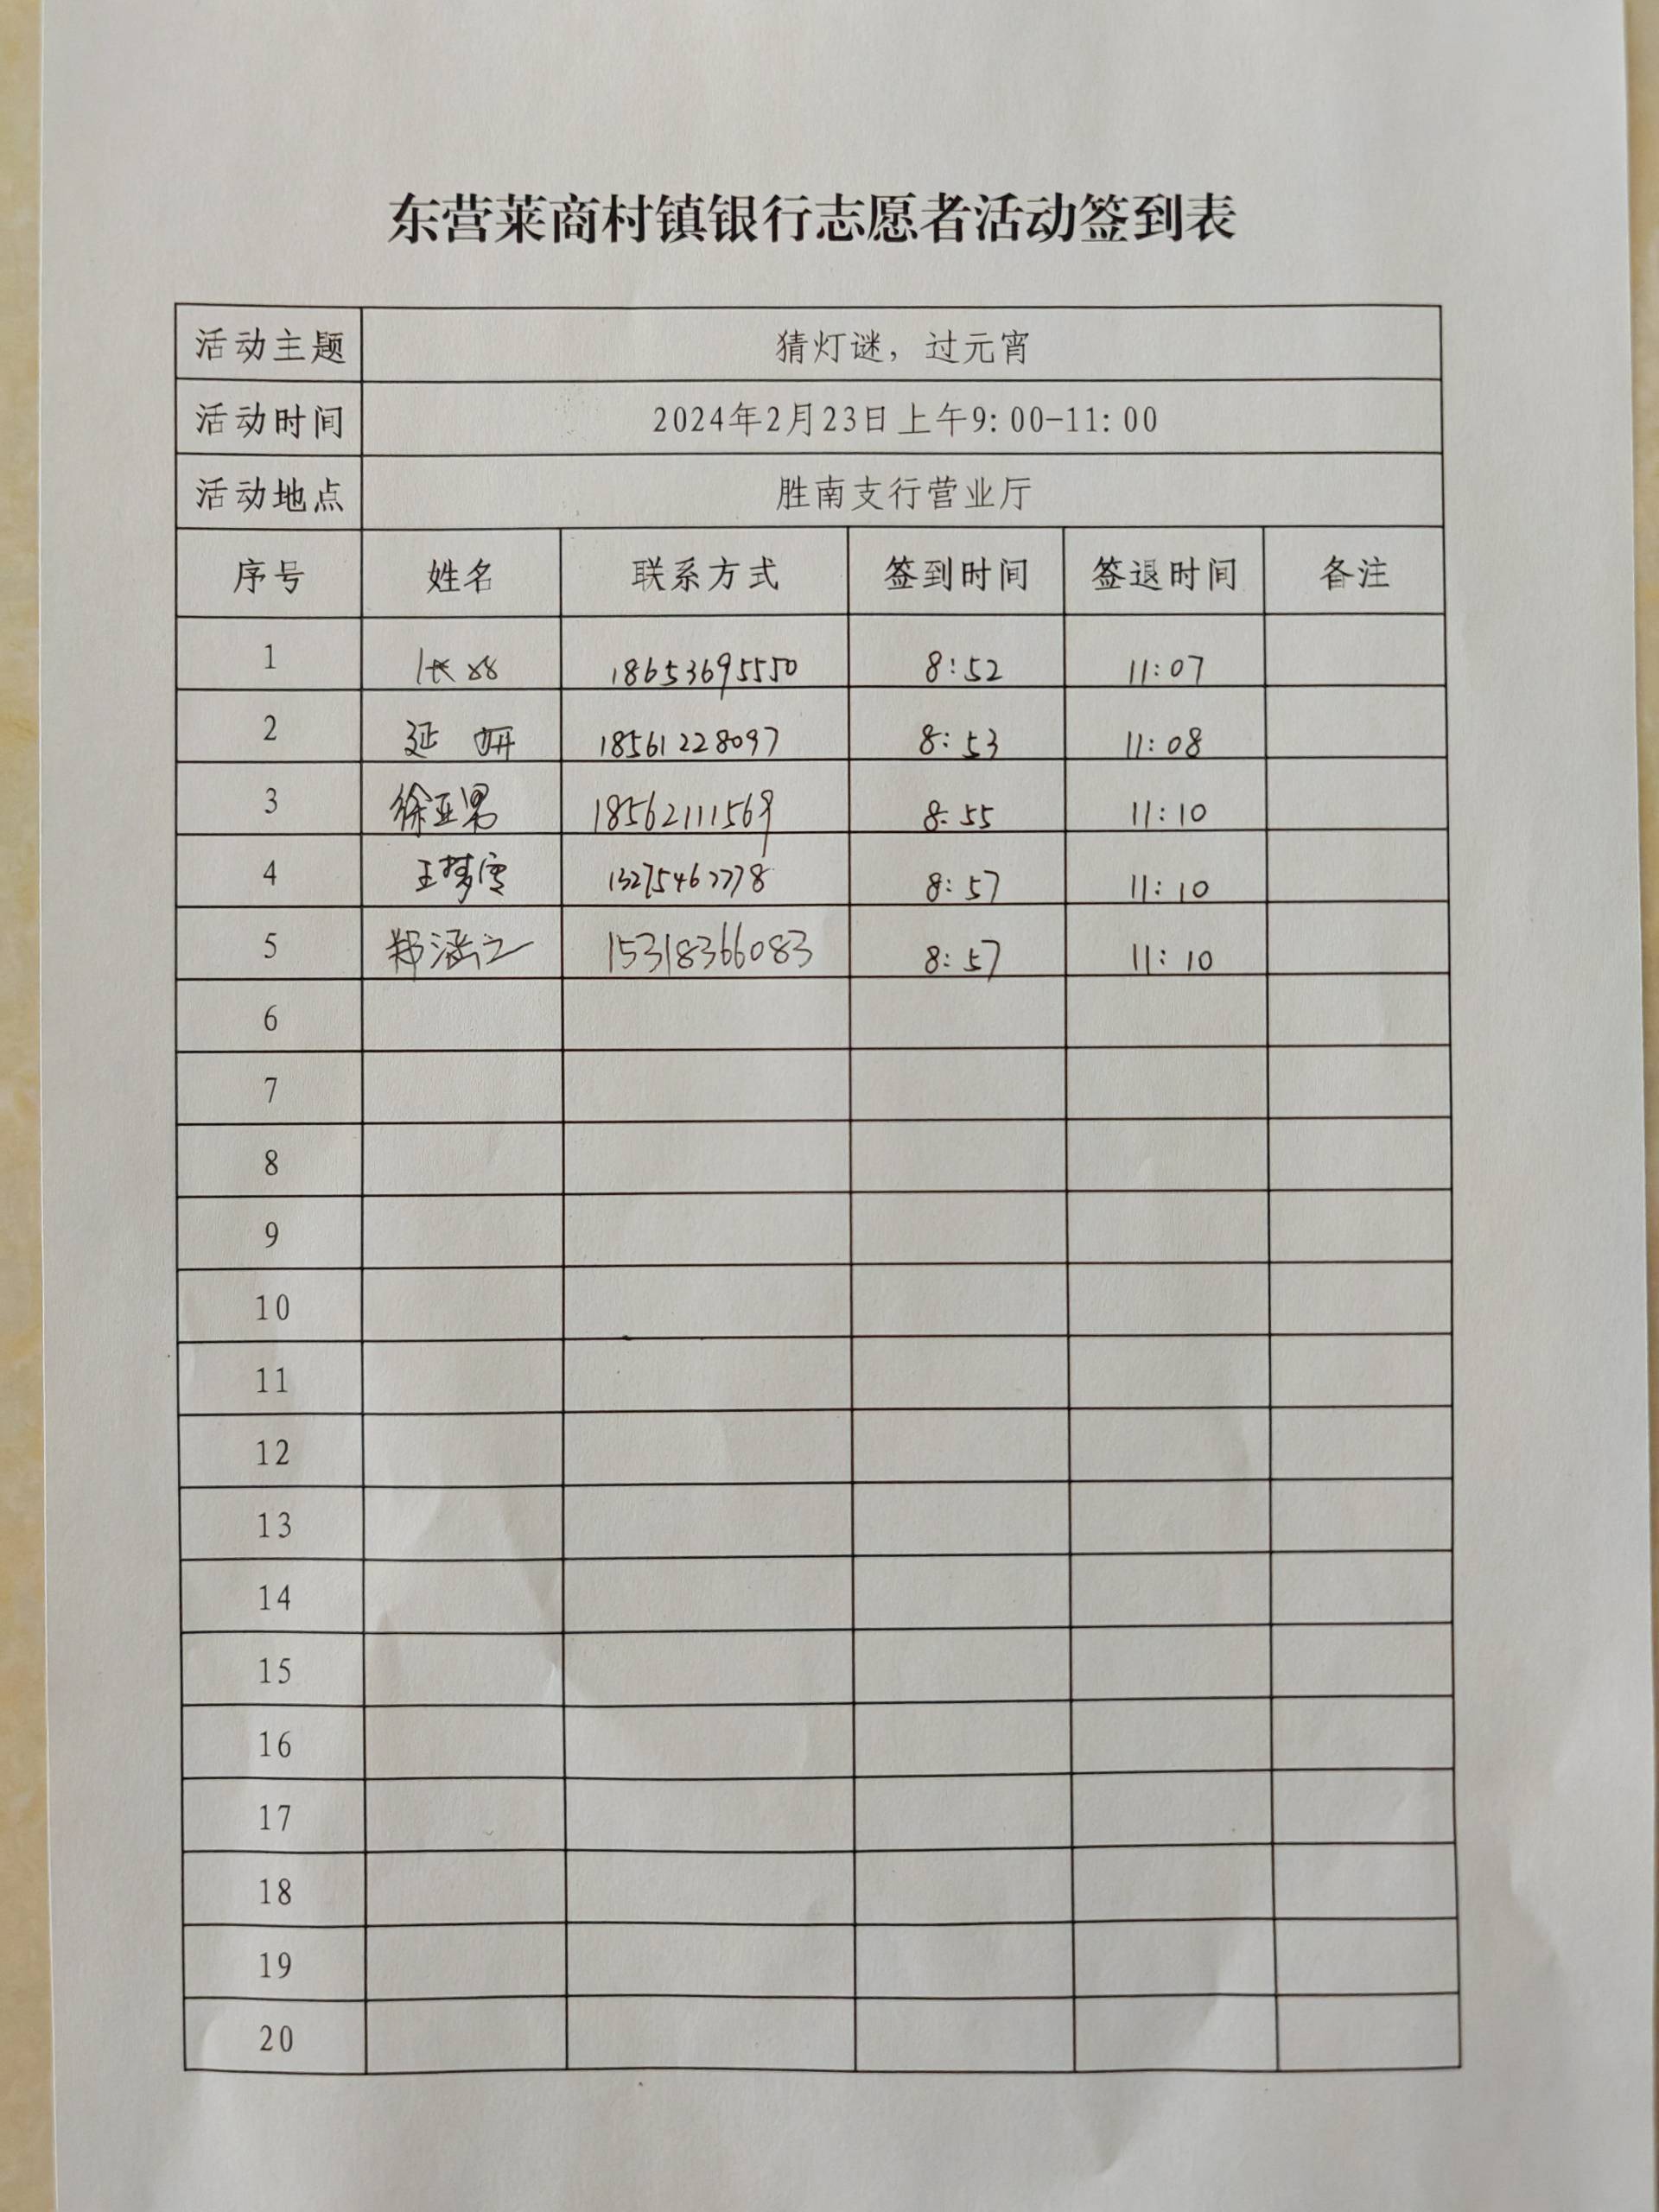 东营莱商村镇银行志愿者活动签到表
活动主题 猜灯谜，过元宵
活动时间 2024年2月23日上午9:00-11:00
活动地点 胜南支行营业厅
序号 姓名 联系方式 签到时间 签退时间 备注
1 18653695550 8:52 11:07
2 延妍 18561228097 8:53 11:08
3 徐亚男 18562111569 8:55 11:10
4 王梦雪 13275462778 8:57 11:10
5 郑涵之 15318366083 8:57 11:10
6
7
8
9
10
11
12
13
14
15
16
17
18
19
20